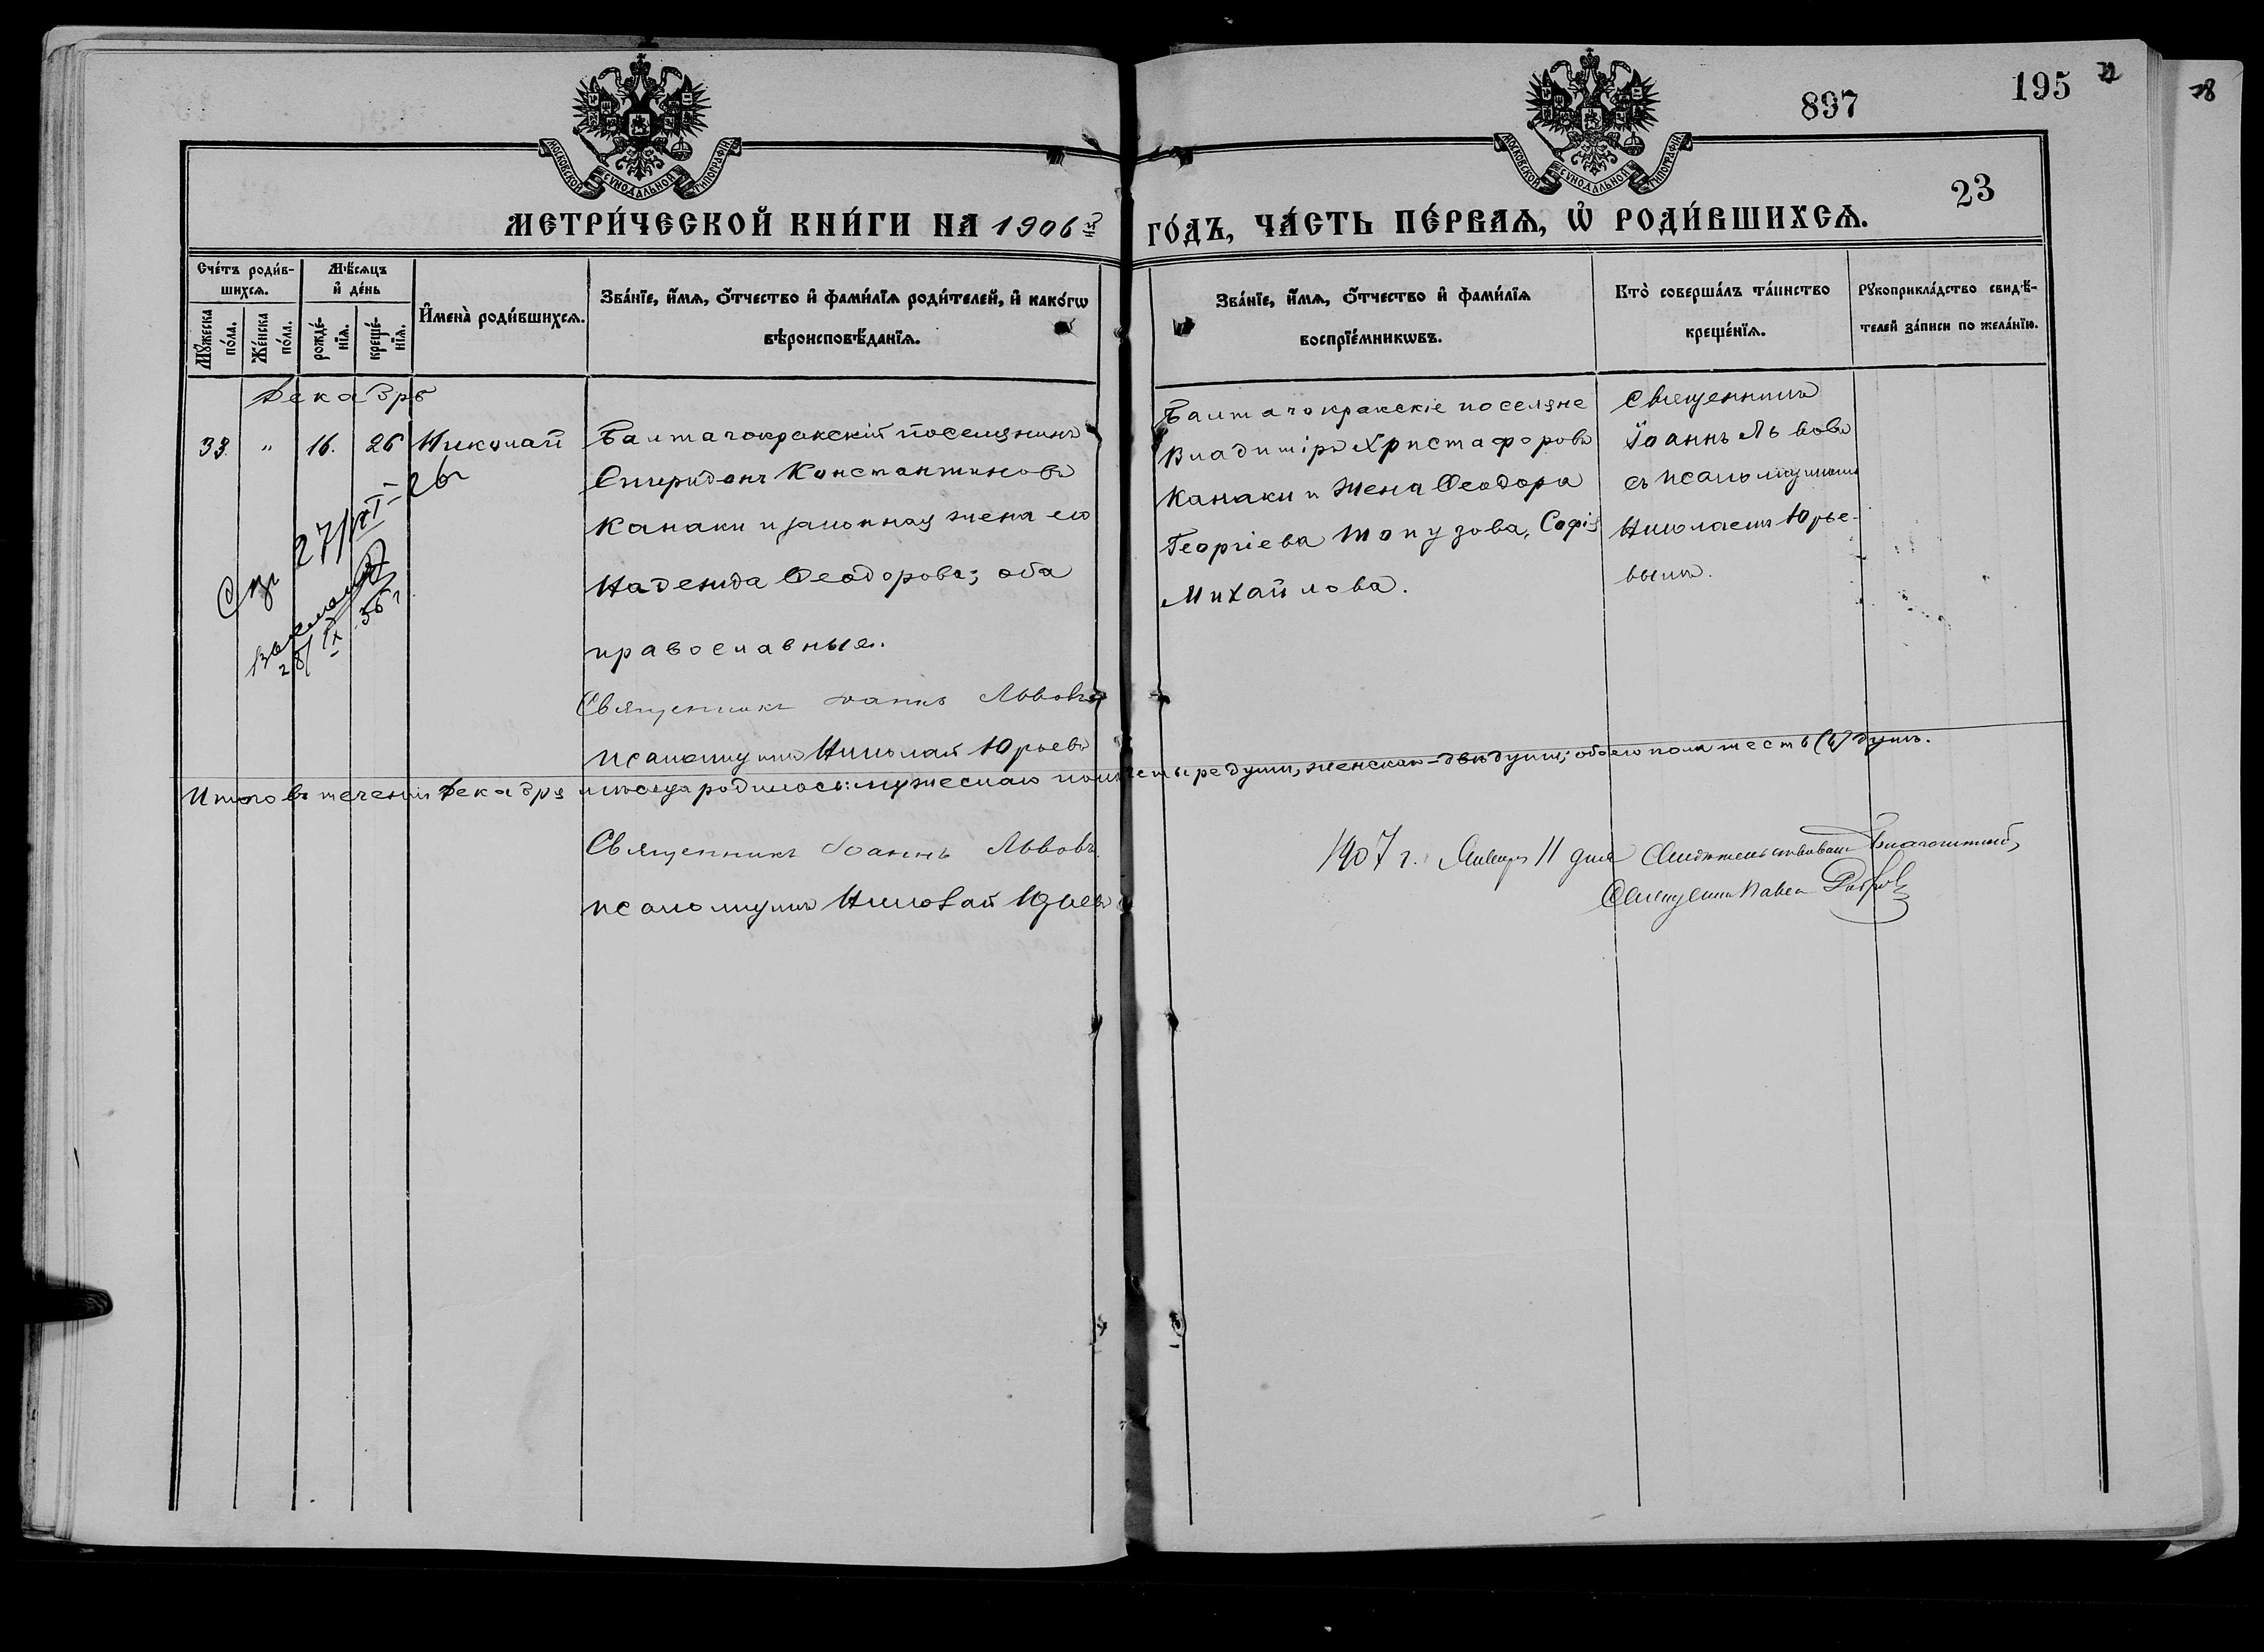 897
195
23
МОСКОВСКОЙ СѴНОДАЛЬНОЙ ТИПОГРАФІИ
МОСКОВСКОЙ СѴНОДАЛЬНОЙ ТИПОГРАФІИ
МЕТРИ́ЧЕСКОЙ КНИ́ГИ НА 1906й ГО́ДЪ, ЧА́СТЬ ПЕ́РВАѦ, Ѡ҆ РОДИ́ВШИХСѦ.
Сче́тъ роди́в-
шихсѧ.
Мꙋ́жеска по́ла.
Же́нска по́ла.
Мѣ́сѧцъ
и҆ де́нь
рожде́-
нїѧ.
креще́-
нїѧ.
И҆мена̀ роди́вшихсѧ.
Зва́нїе, и҆́мѧ, ѻ҆́тчество и҆ фами́лїѧ роди́телей, и҆ како́гѡ
вѣроисповѣ́данїѧ.
Зва́нїе, и҆́мѧ, ѻ҆́тчество и҆ фами́лїѧ
воспрїе́мникѡвъ.
Кто̀ соверша́лъ та́инство
креще́нїѧ.
Рꙋкоприкла́дство свидѣ́-
телей за́писи по жела́нїю.
Декабрь
33. " 16. 26 Николай
Балтачокракскій поселянинъ
Спиридонъ Константиновъ
Канаки и законная жена его
Надежда Ѳеодорова; оба
православные.
Священникъ Іоаннъ Львовъ
псаломщикъ Николай Юрьевъ
Балтачокракскіе поселяне
Владиміръ Христофоровъ
Канаки и жена Ѳеодора
Георгіева Топузова, Софія
Михайлова.
Священникъ
Іоаннъ Львовъ
съ псаломщикомъ
Николаемъ Юрье-
вымъ.
27/XI-26г
28/IX 36г
Итого въ теченіи Декабря мѣсяца родилось: мужескаго пола четыре души, женскаго - двѣ души; обоего пола шесть (6) душъ.
Священникъ Іоаннъ Львовъ
псаломщикъ Николай Юрьевъ
1907 г. Января 11 дня Свидѣтельствовалъ Благочинный,
Священникъ Павелъ